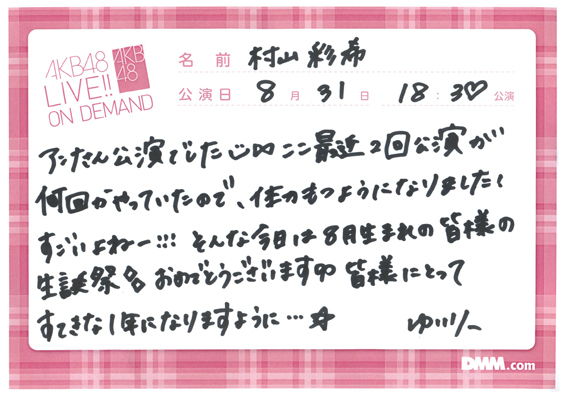 AKB48
LIVE!!
ON DEMAND
AKB
48
名前 村山彩希
公演日 8月31日 18:30公演
公演でした ここ最近2回公演が
何回かやっていたので、体力もつようになりました!
すごいよねー!!! そんな今日は8月生まれの皆様の
生誕祭 おめでとうございます 皆様にとって
すてきな1年になりますように…☆ ゆいりー
DMM.com